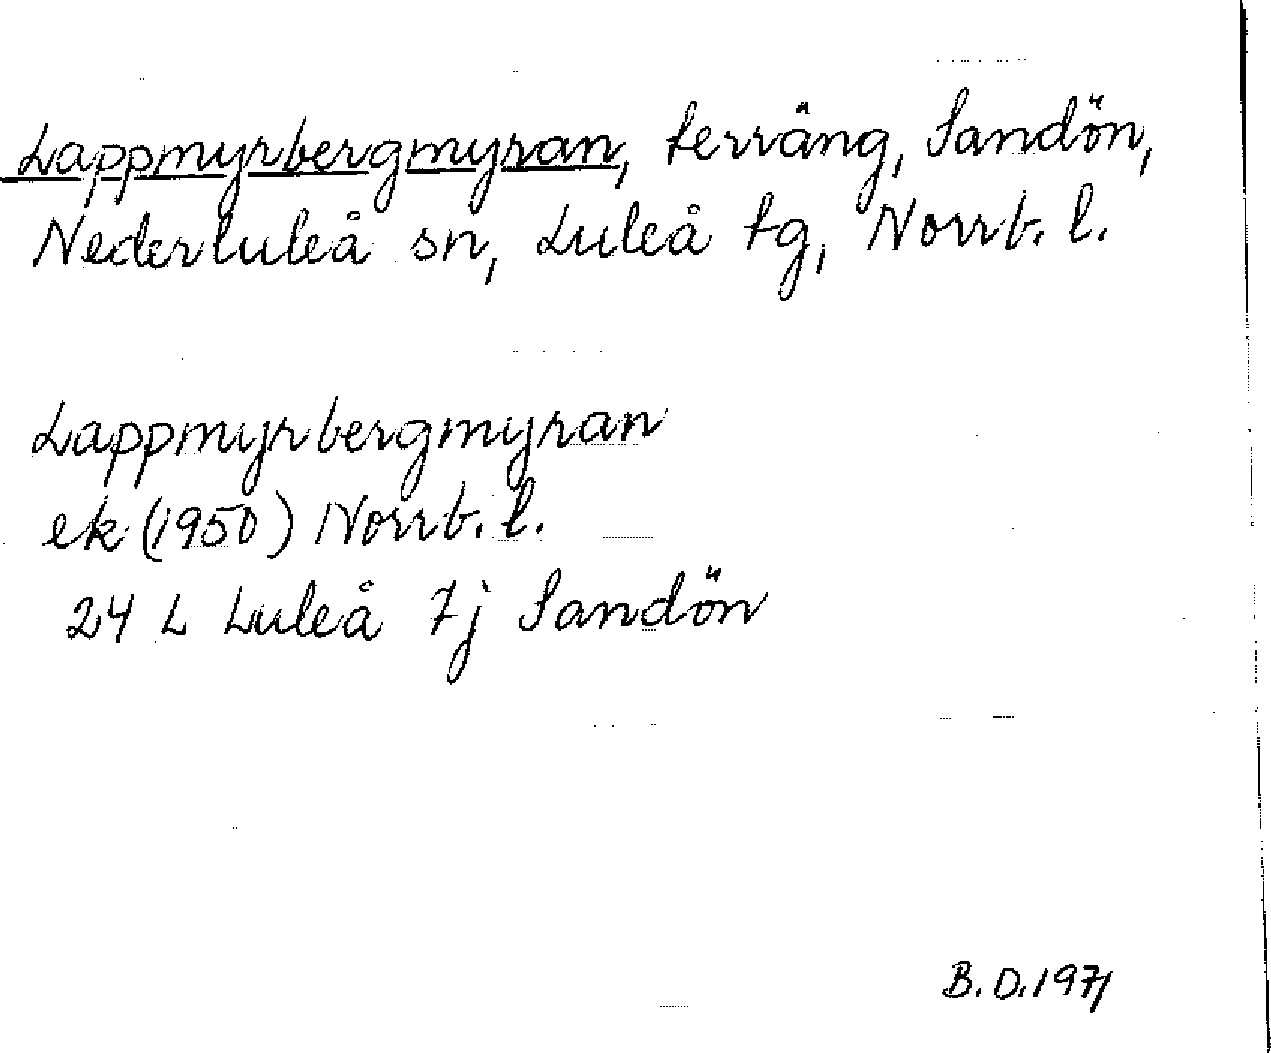 Lappmyrbergmyran, terräng, Sandön,
Nederluleå sn, Luleå tg, Norrb. l.
Lappmyrbergmyran
ek (1950) Norrb. l.
24 L Luleå 7j Sandön
B. D. 1971